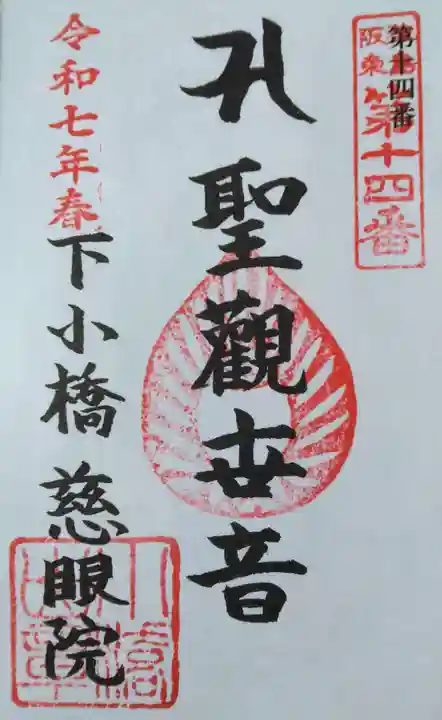 第十四番
阪東
第十四番
孔聖觀世音
令和七年春
下小橋 慈眼院